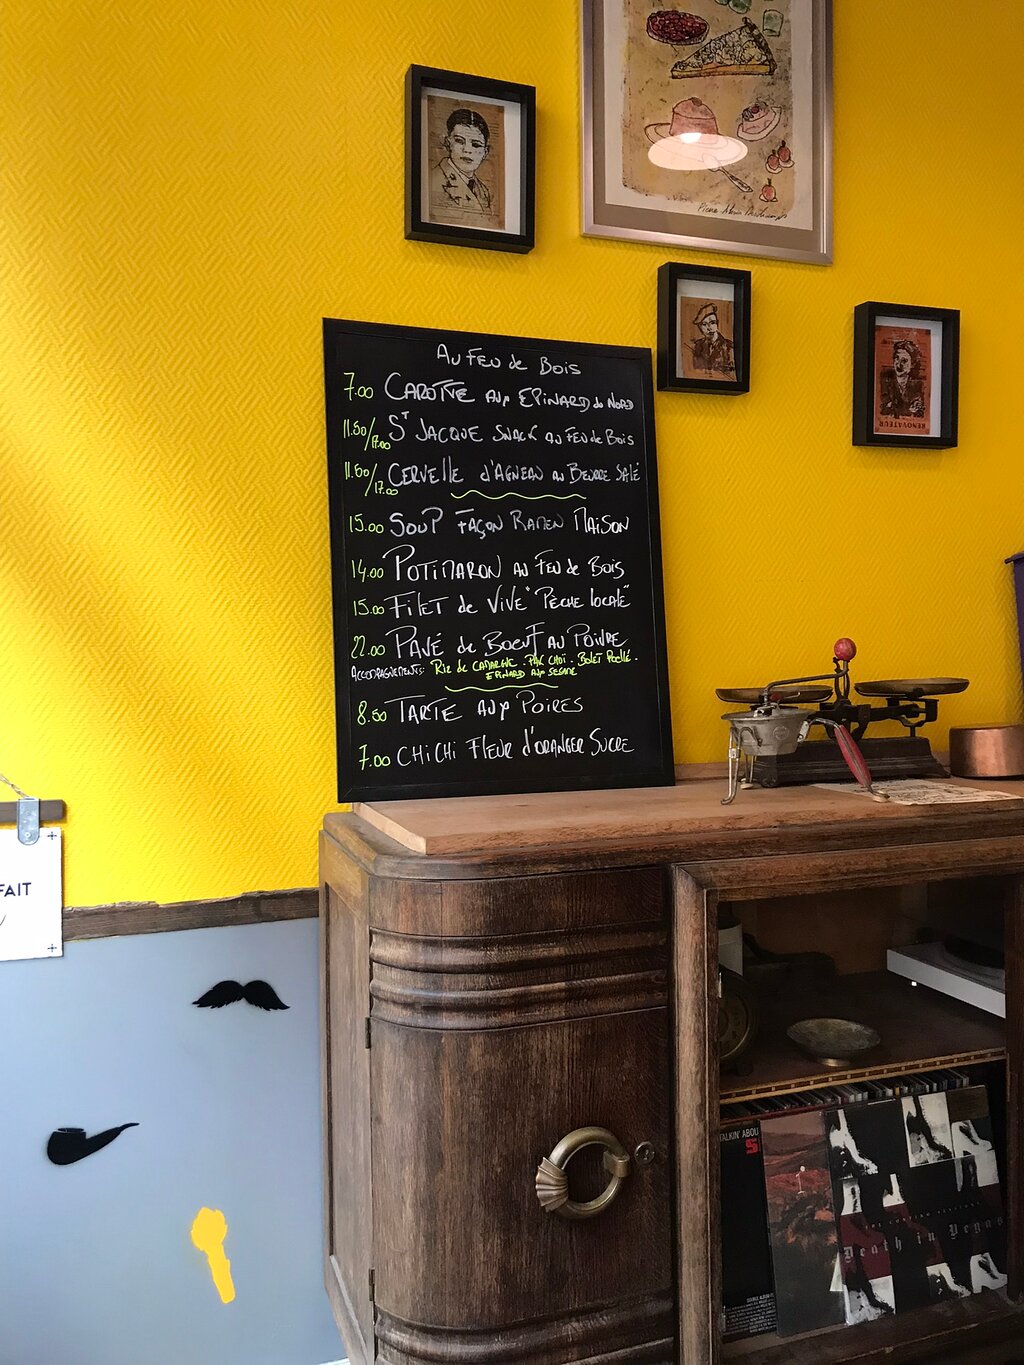 Au Feu de Bois
7.00 CAROTTE aux EPINARD du NORD
11.50/17.00 St JACQUE SNACK au FEU de BOIS
11.50/17.00 CERVELLE d'AGNEAU au BEURRE SALÉ
15.00 SOUP FAÇON RAMEN MAISON
14.00 POTIMARON AU FEU de BOIS
15.00 FILET de VIVE "PÊCHE locale"
22.00 PAVÉ de BOEUF AU POIVRE
ACCOMPAGNEMENTS: RIZ de CAMARGUE. PAK CHOI. BOLET POELÉ.
EPINARD aux SESAME
8.50 TARTE AUX POIRES
7.00 CHICHI FLEUR d'ORANGER SUCRE
RENOVATEUR
FAIT
TALKIN' ABOU
Death in Vegas